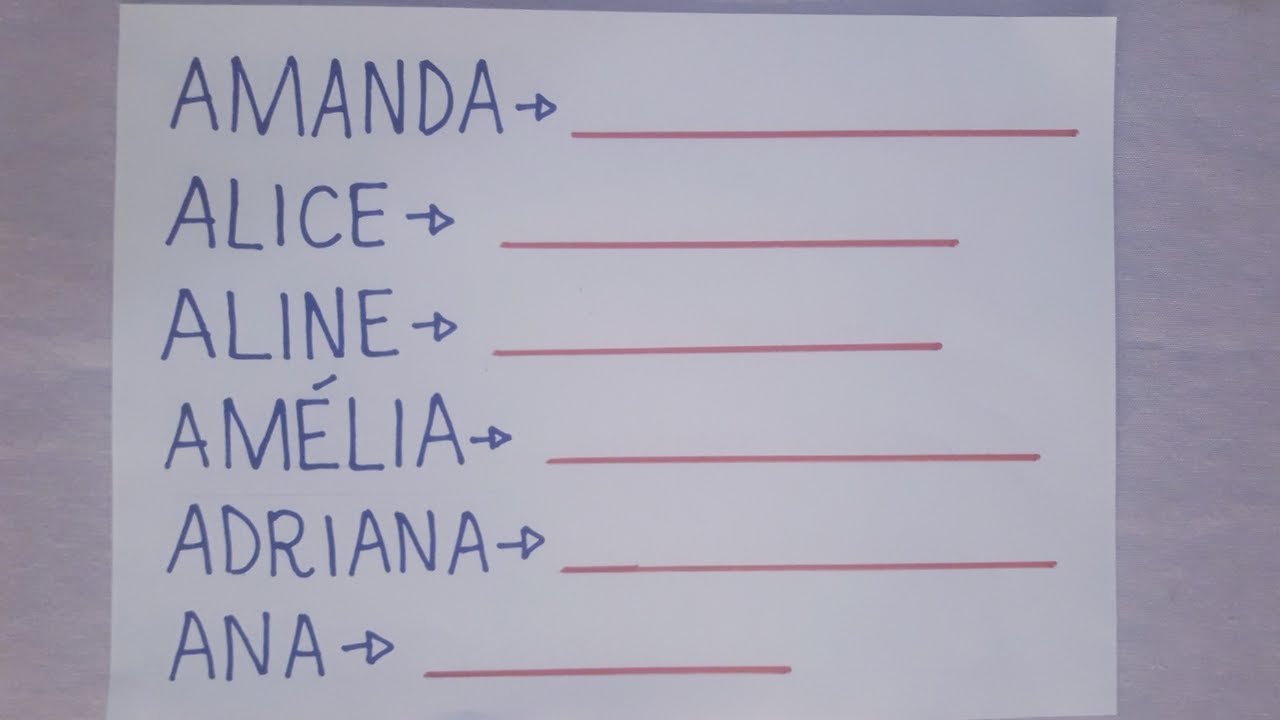 AMANDA →
ALICE →
ALINE →
AMÉLIA →
ADRIANA →
ANA →